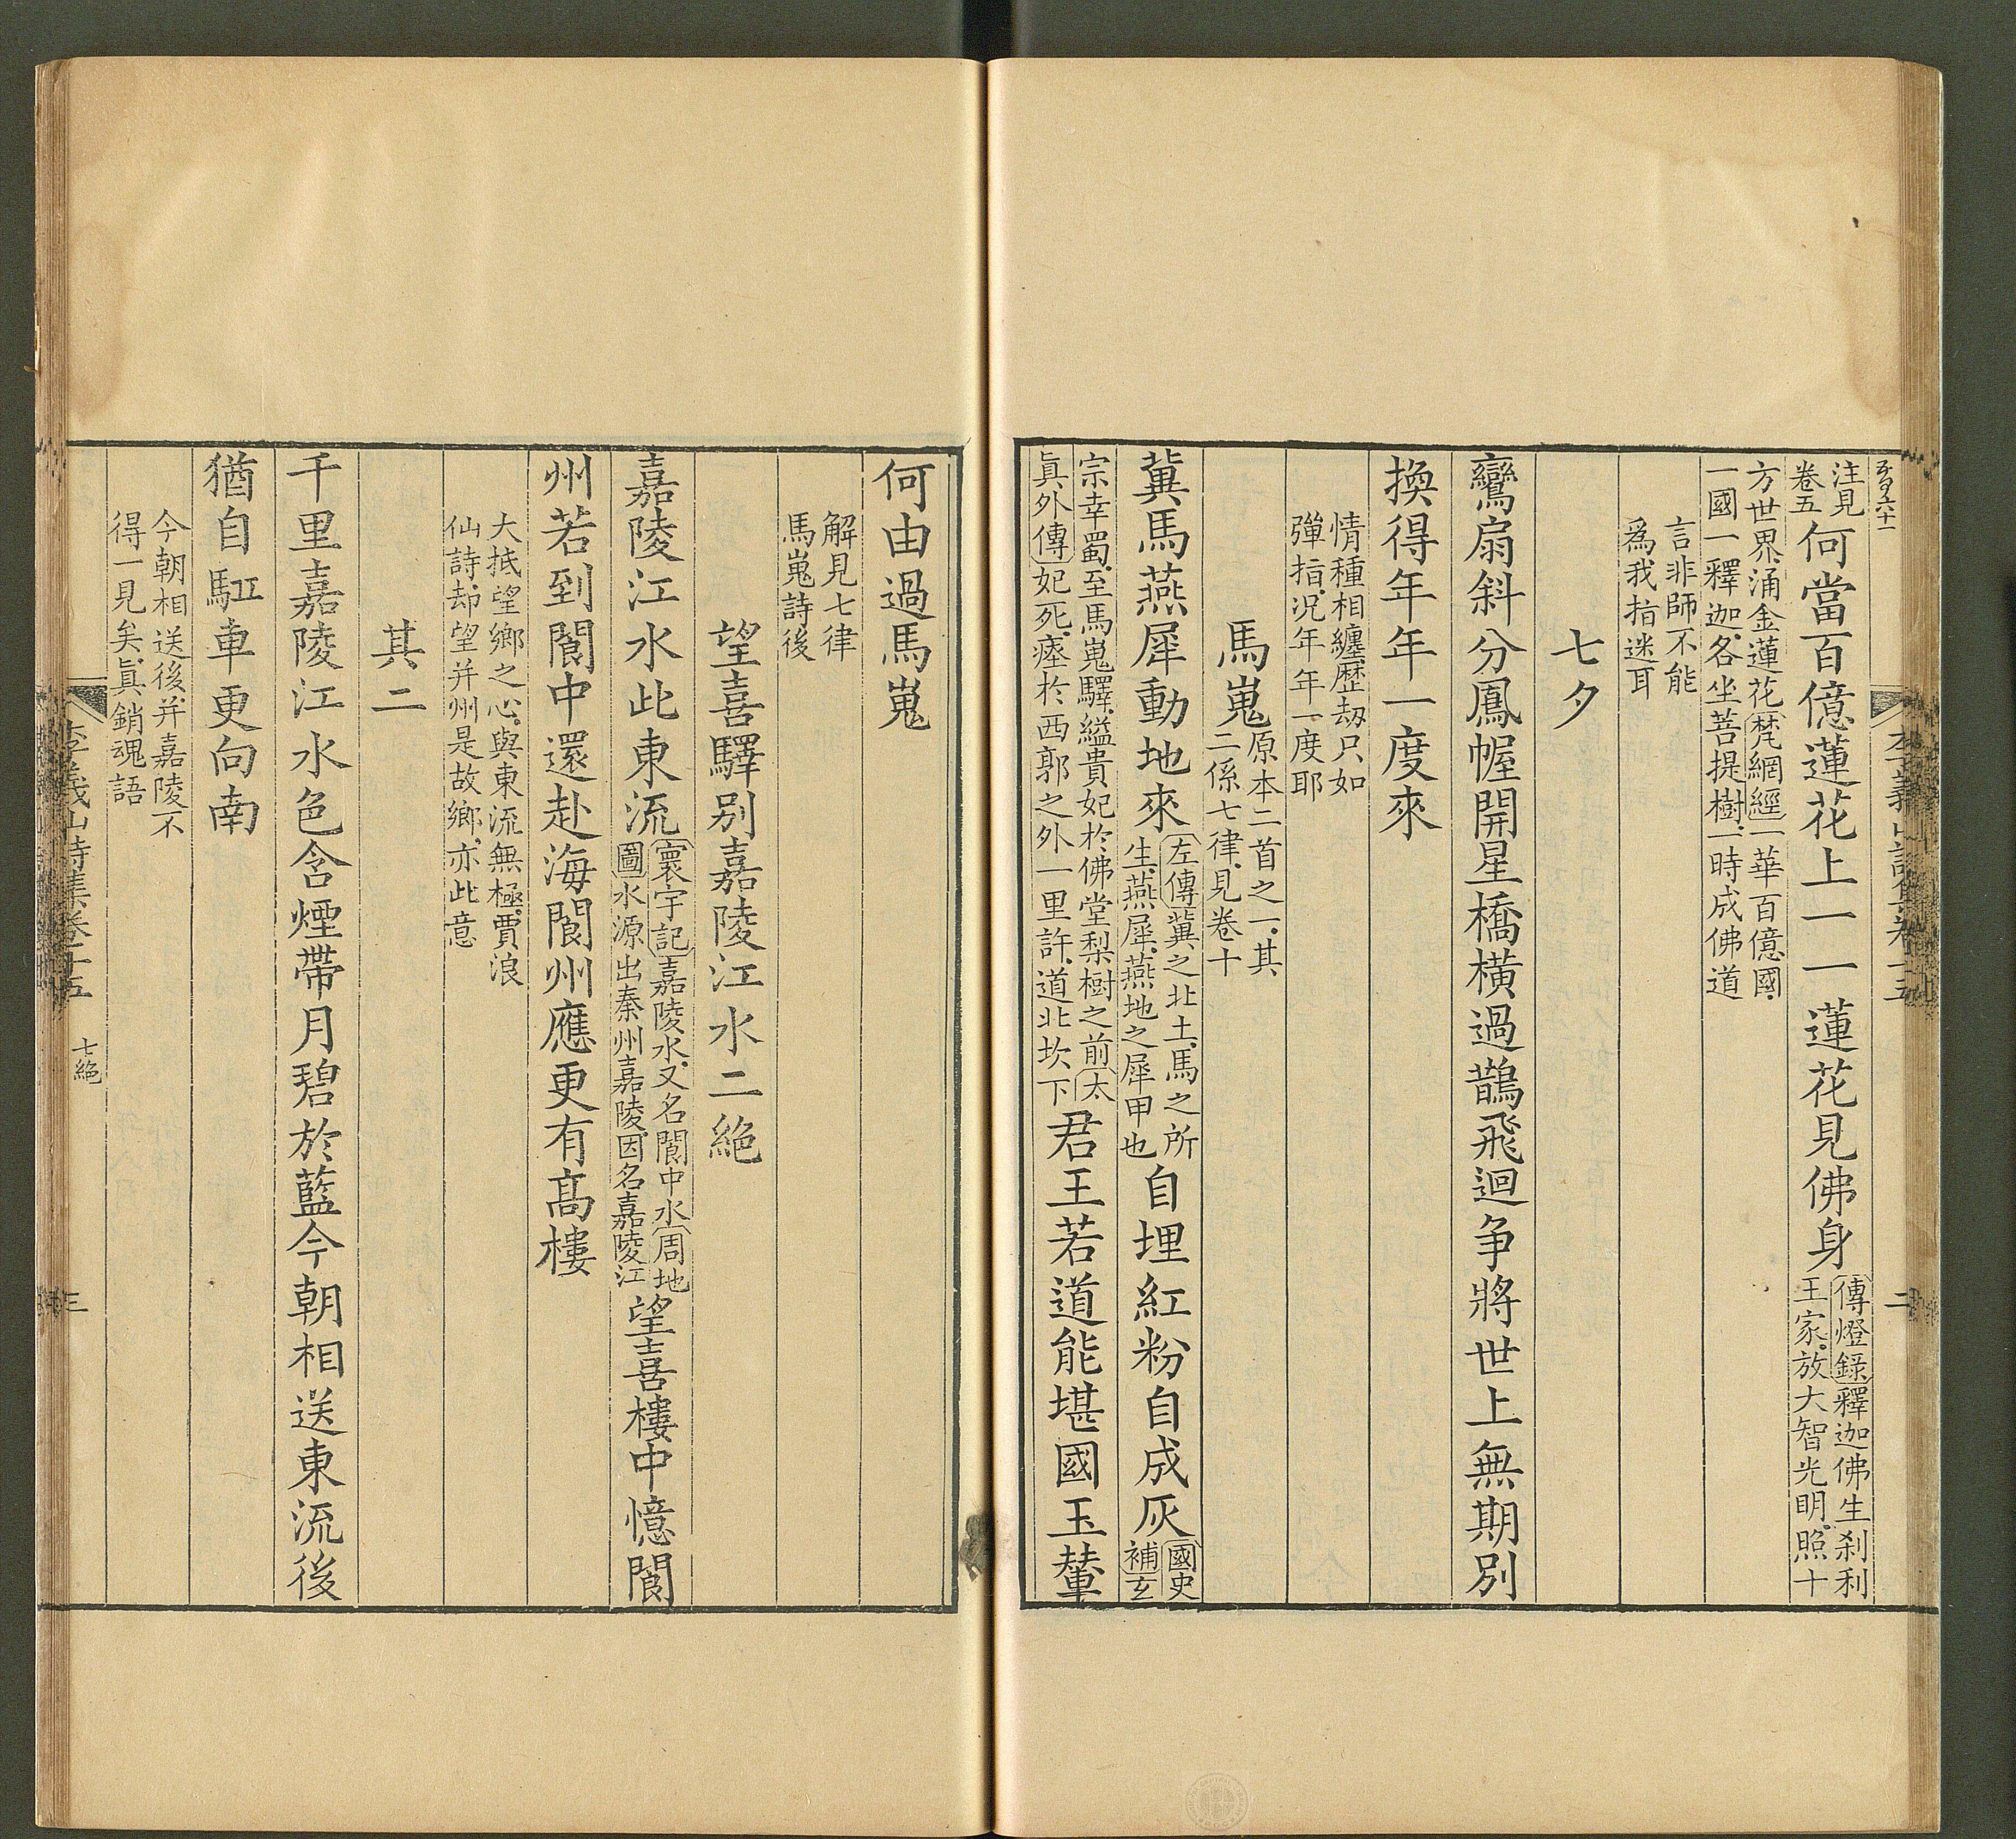 李義山詩集卷十五
二
注見
卷五
何當百億蓮花上一一蓮花見佛身
傳燈錄釋迦佛生刹利
王家放大智光明照十
方世界涌金蓮花梵網經一華百億國
一國一釋迦各坐菩提樹一時成佛道
言非師不能
爲我指迷耳
七夕
鸞扇斜分鳳幄開星橋橫過鵲飛迴争將世上無期別
換得年年一度來
情種相纏歴刼只如
彈指况年年一度耶
馬嵬
原本二首之一其
二係七律見卷十
冀馬燕犀動地來
左傳冀之北土馬之所
生燕犀燕地之犀甲也
自埋紅粉自成灰
國史
補玄
宗幸蜀至馬嵬驛縊貴妃於佛堂梨樹之前太
眞外傳妃死瘞於西郭之外一里許道北坎下
君王若道能堪國玉輦
何由過馬嵬
解見七律
馬嵬詩後
望喜驛别嘉陵江水二絶
嘉陵江水此東流
寰宇記嘉陵水又名閬中水周地
圖水源出秦州嘉陵因名嘉陵江
望喜樓中憶閬
州若到閬中還赴海閬州應更有髙樓
大抵望鄉之心與東流無極賈浪
仙詩却望并州是故鄉亦此意
其二
千里嘉陵江水色含煙帶月碧於藍今朝相送東流後
猶自駈車更向南
今朝相送後并嘉陵不
得一見矣眞銷魂語
李義山詩集卷十五
七絶
三